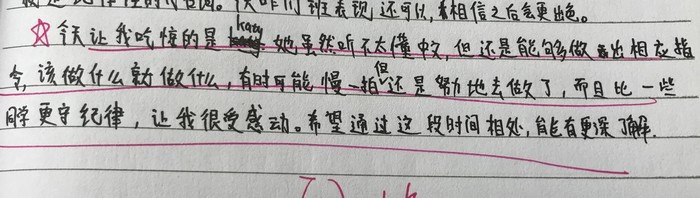 班表现还可以,相信之后会更出色。
☆今天让我吃惊的是katy她虽然听不太懂中文,但还是能够做出相应指
令,该做什么就做什么,有时可能慢一拍但还是努力地去做了,而且比一些
同学更守纪律,让我很受感动。希望通过这段时间相处,能有更深了解.